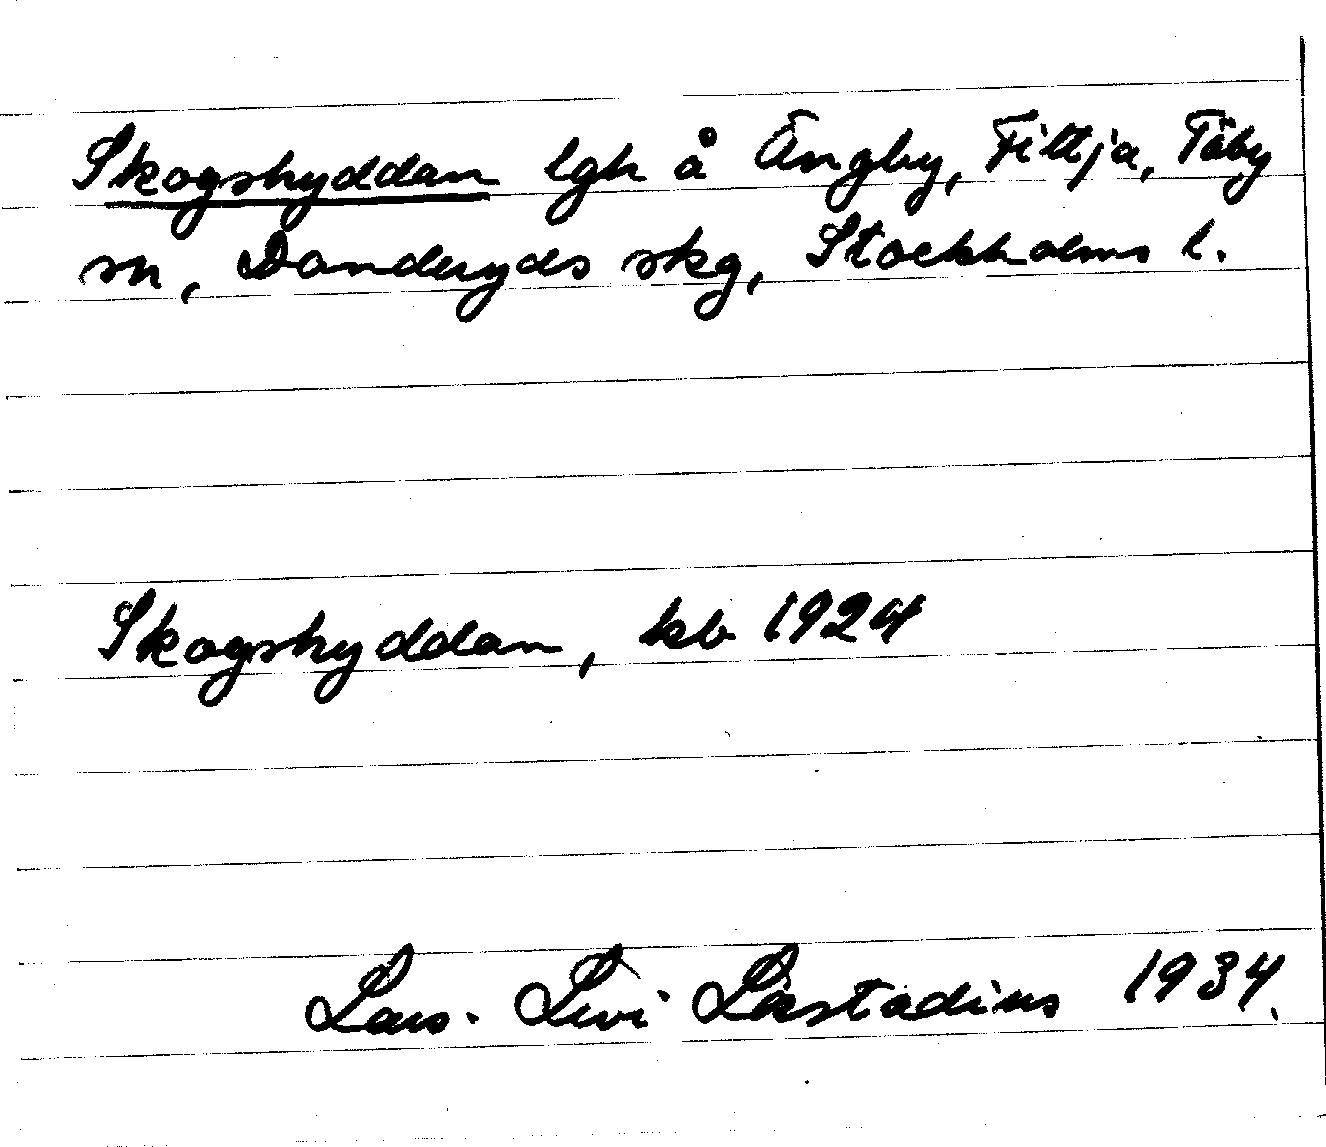 Skogshyddan lgh å Ängby, Fittja, Täby
sn, Danderyds skg, Stockholms l.
Skogshyddan, kb 1924
Lars-Levi Læstadius 1934.